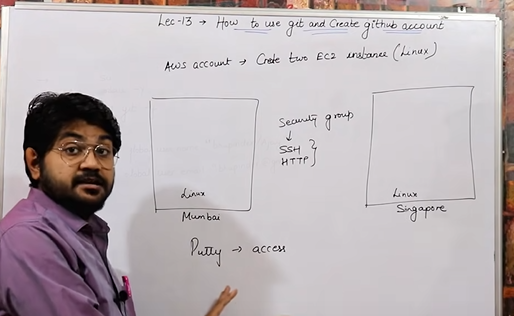 Lec-13 → How to use git and Create github account
AWS account → Create two EC2 instance (Linux)
Security group
↓
SSH
HTTP }
Linux
Mumbai
Linux
Singapore
Putty → access